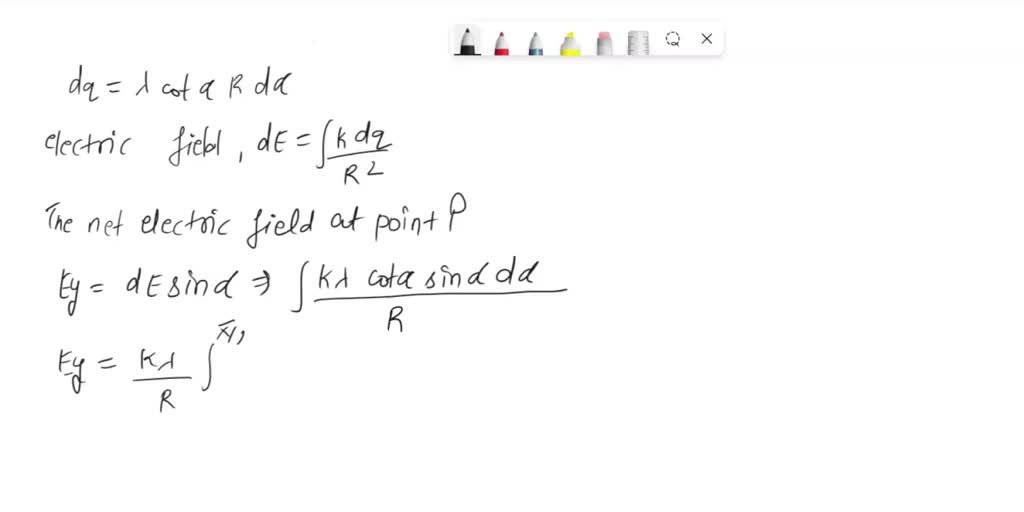 dq = λ cot α R dα
electric field, dE = ∫ K dq / R²
The net electric field at point P
Ey = dE sin α ⇒ ∫ Kλ cot α sin α dα / R
Ey = Kλ / R ∫